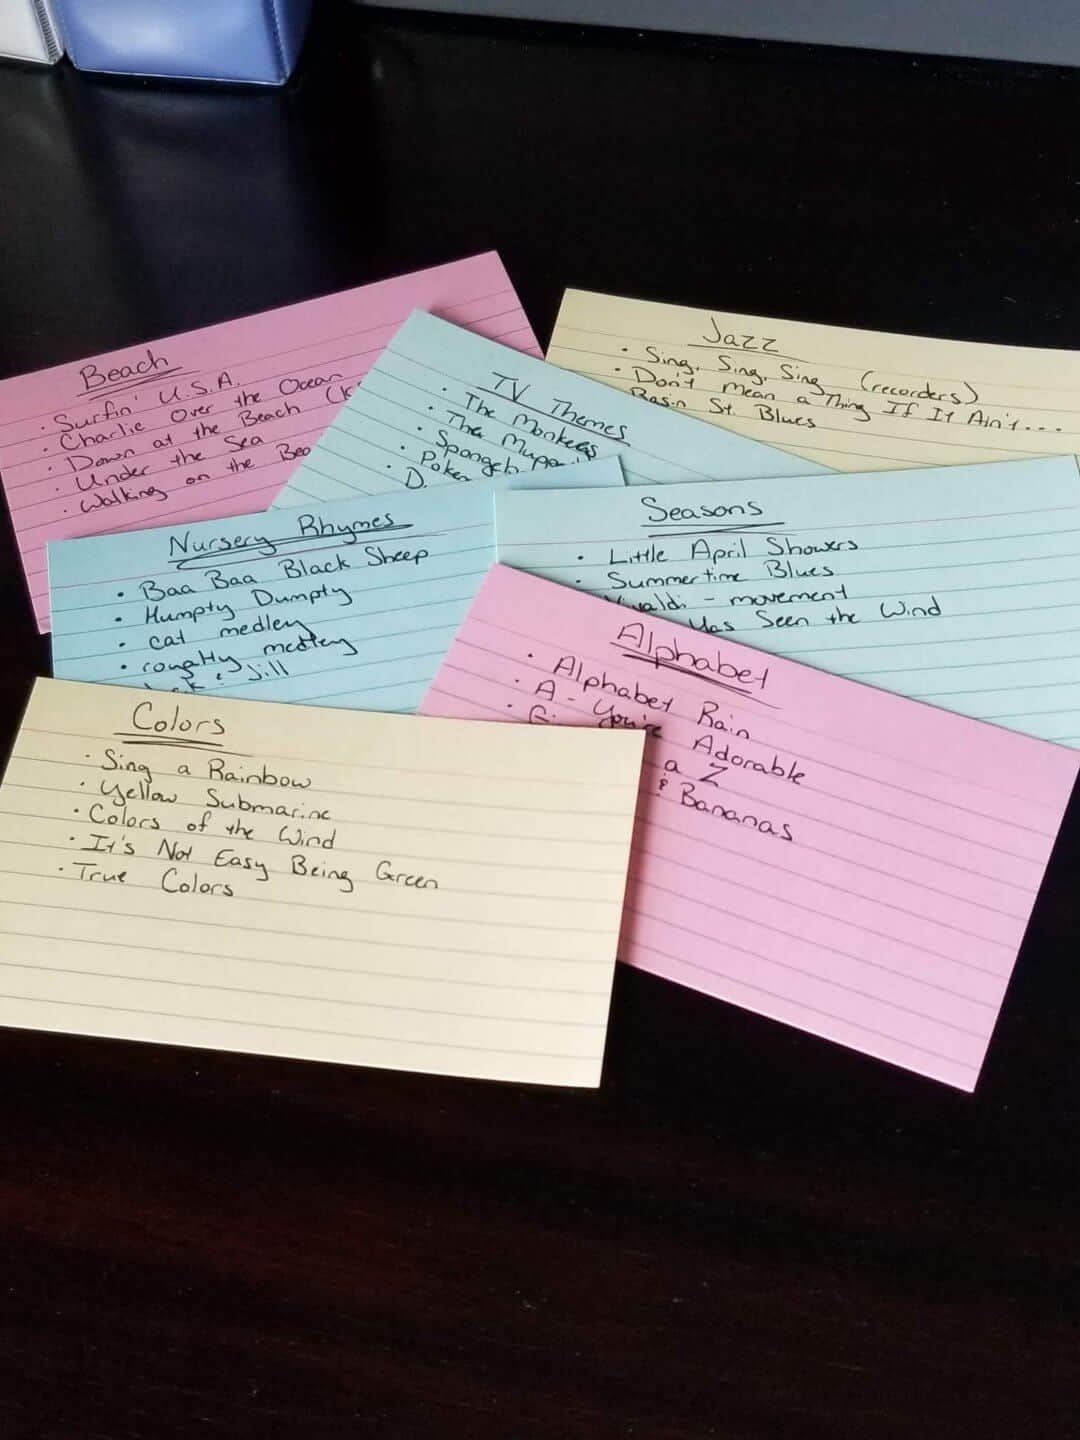 Beach
· Surfin' U.S.A.
· Charlie Over the Ocean
· Down at the Beach
· Under the Sea
· Walking on the
TV Themes
· The Monkees
· The
·
·
Jazz
· Sing, Sing, Sing (recorders)
· Don't Mean a Thing If It Ain't...
Basin St. Blues
Nursery Rhymes
· Baa Baa Black Sheep
· Humpty Dumpty
· cat medley
· royalty medley
: Jill
Seasons
· Little April Showers
· Summertime Blues
- movement
Has Seen the Wind
Alphabet
· Alphabet Rain
· A - You're Adorable
· a Z
& Bananas
Colors
· Sing a Rainbow
· Yellow Submarine
· Colors of the Wind
· It's Not Easy Being Green
· True Colors